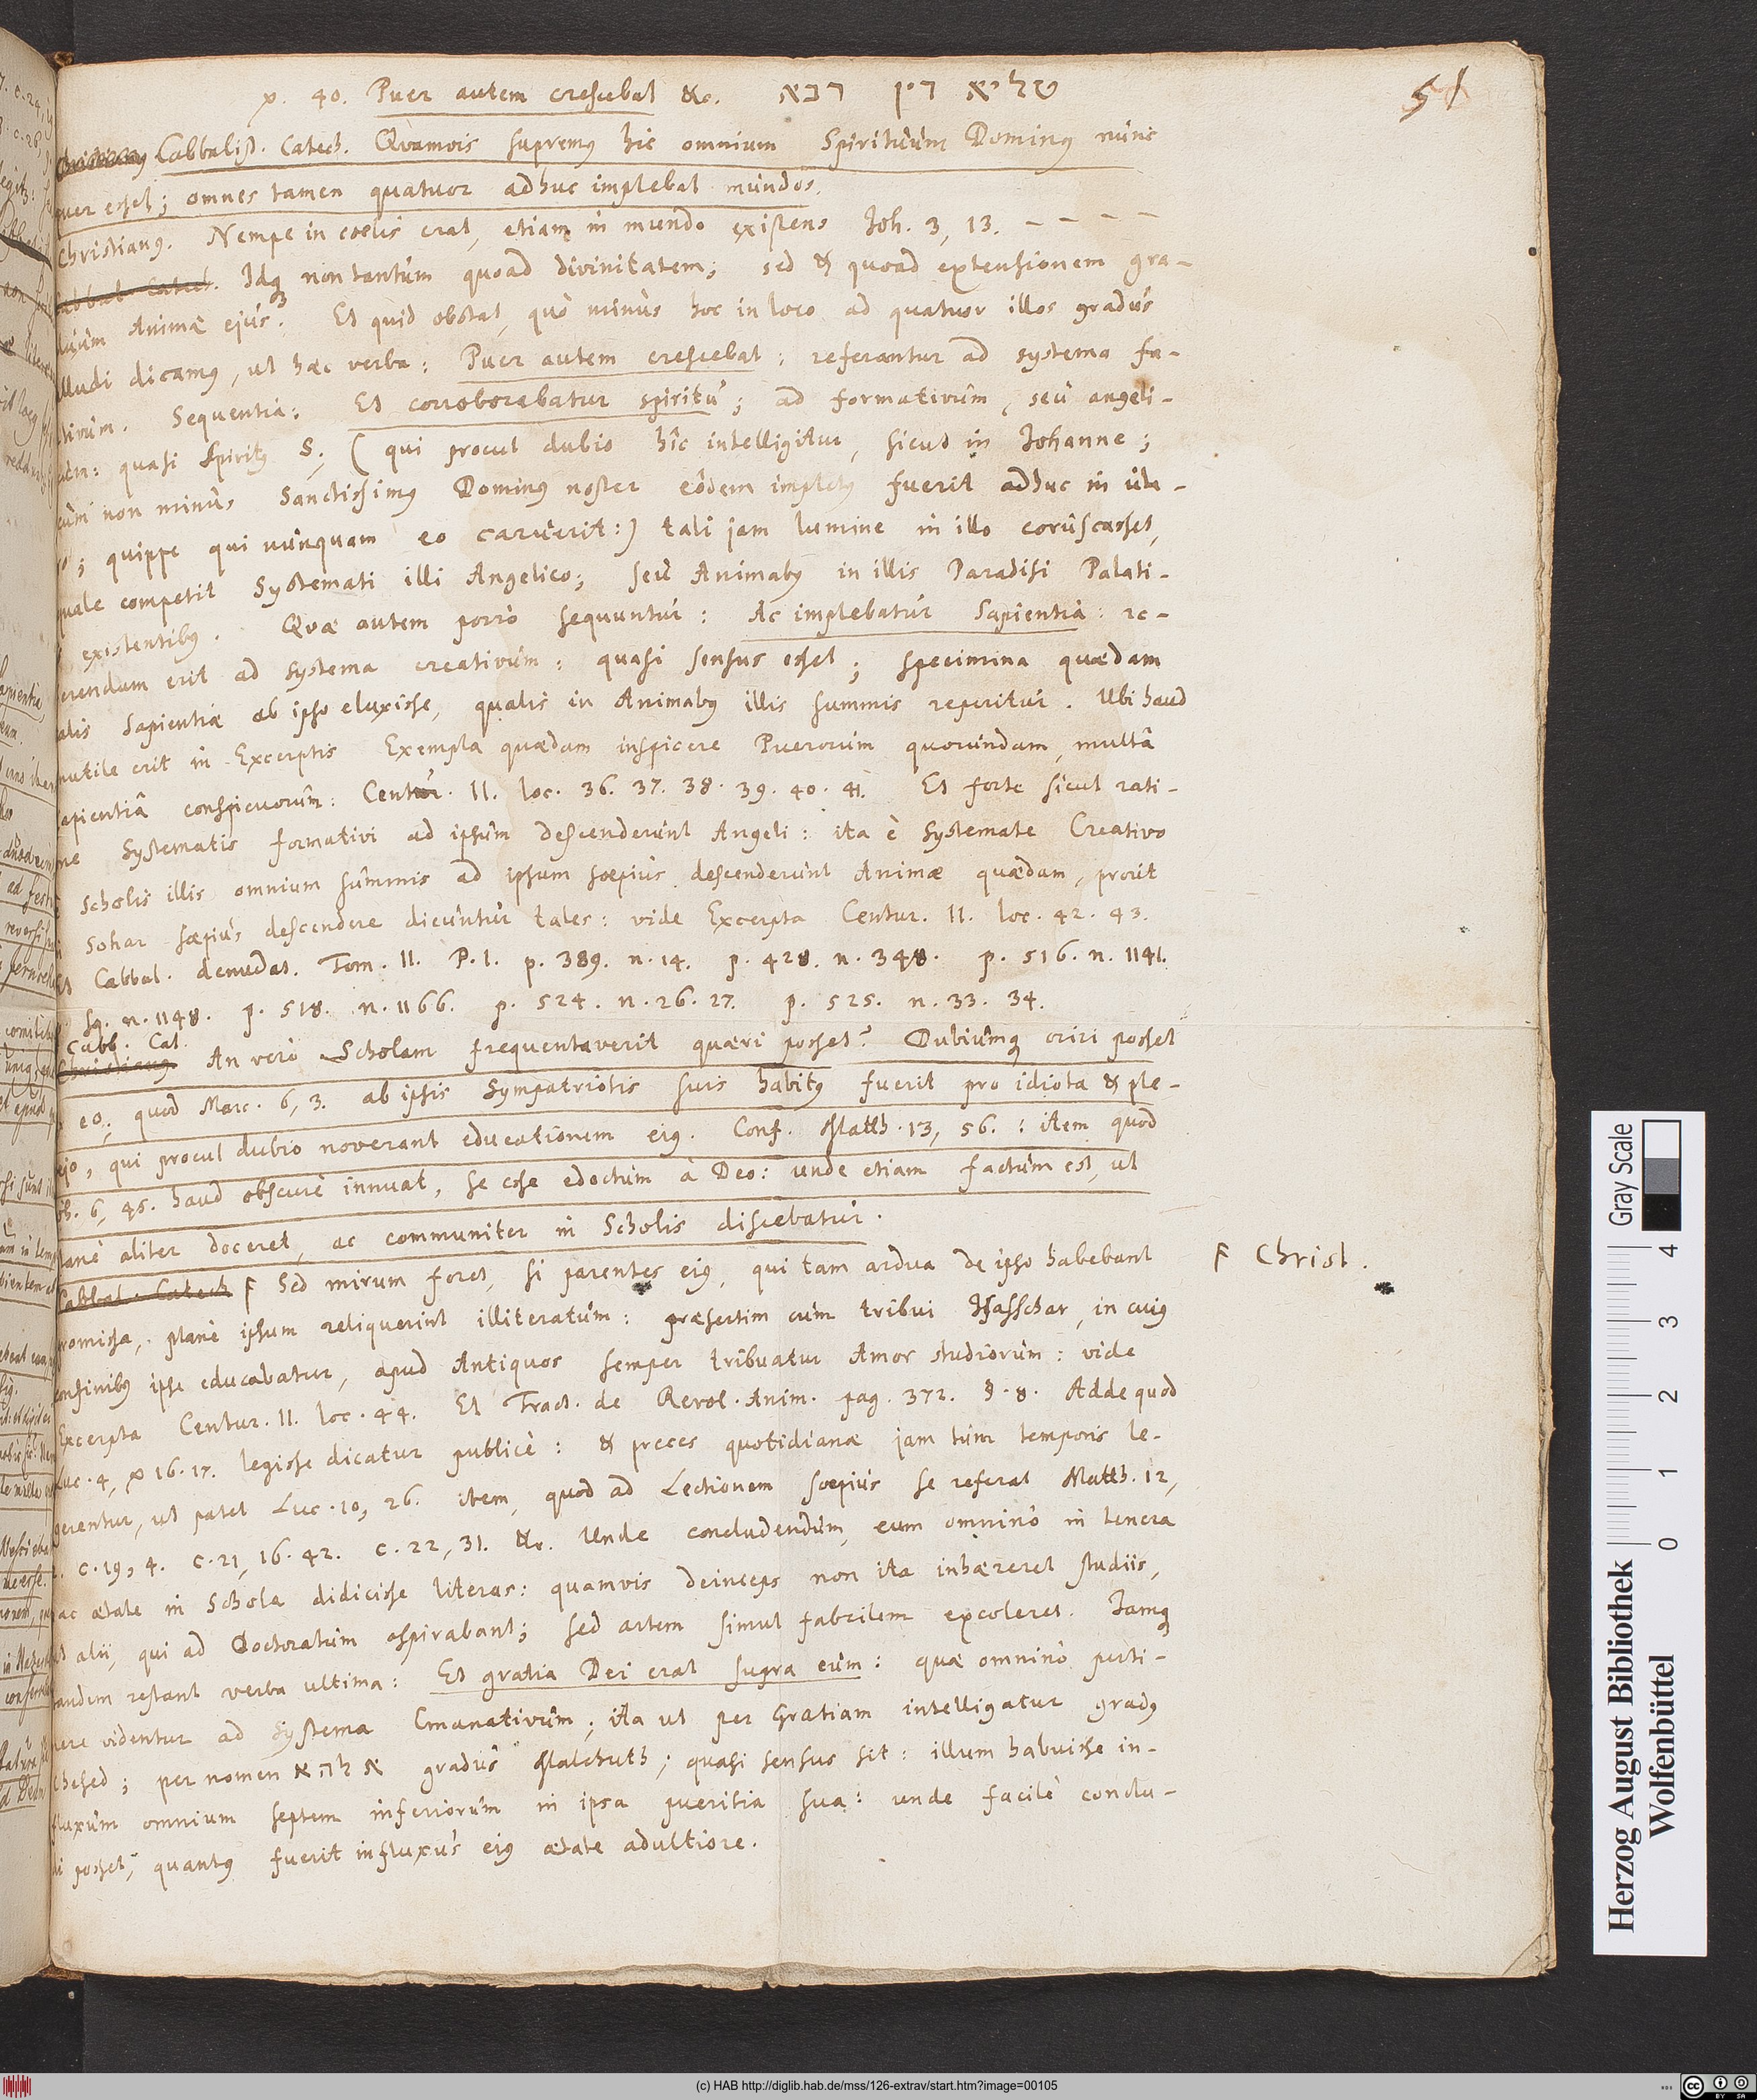 51
℣. 40. Puer autem crescebat &c. טליא דין רבא
Christianus Cabbalist. Catech. Qvamvis supremus hic omnium Spirituum Dominus nunc
puer esset; omnes tamen quatuor adhuc implebat mundos.
Christianus. Nempe in coelis erat, etiam in mundo existens Joh. 3, 13. – – – –
Cabbal. Catech. Idq non tantum quoad divinitatem; sed & quoad extensionem gra-
duum Animae ejus? Et quid obstat, quo minus hoc in loco ad quatuor illos gradus
alludi dicamus, ut haec verba: Puer autem crescebat: referantur ad systema fa-
ctivum. Sequentia: Et corroborabatur spiritu; ad formativum, seu angeli-
cum: quasi Spiritus S; (qui procul dubio hic intelligitur, sicut in Johanne;
cum non minus Sanctissimus Dominus noster eodem impletus fuerit adhuc in ute-
ro; quippe qui nunquam eo caruerit:) tali jam lumine in illo coruscasset,
quale competit Systemati illi Angelico; seu Animabus in illis Paradisi Palati-
is existentibus. Qvae autem porro sequuntur: Ac implebatur Sapientia: re-
ferendum erit ad systema creativum: quasi sensus esset; specimina quaedam
talis Sapientiae ab ipso eluxisse, qualis in Animabus illis summis reperitur. Ubi haud
inutile erit in Excerptis Exempla quaedam inspicere Puerorum quorundam, multa
sapientia conspicuorum: Centur. II. loc. 36. 37. 38. 39. 40. 41. Et forte sicut rati-
one Systematis formativi ad ipsum descenderunt Angeli: ita è Systemate Creativo
Scholis illis omnium summis ad ipsum soepius descenderunt Animae quaedam, prout
in Sohar saepius descendere dicuntur tales: vide Excerpta Centur. II. loc. 42. 43.
Et Cabbal. denudat. Tom. II. P. I. p. 389. n. 14. p. 428. n. 348. p. 516. n. 1141.
sq. n. 1148. p. 518. n. 1166. p. 524. n. 26. 27. p. 525. n. 33. 34.
Cabb. Cat.
Christianus. An vero Scholam frequentaverit quaeri posset? Dubiumq oriri posset
eo; quod Marc. 6, 3. ab ipsis Sympatriotis suis habitus fuerit pro idiota & ple-
bejo, qui procul dubio noverant educationem eius. Conf. Matth. 13, 56.: item quod
Joh. 6, 45. haud obscurè innuat, se esse edoctum à Deo: unde etiam factum est, ut
plane aliter doceret, ac communiter in Scholis discebatur.
Cabbal. Catech. F Sed mirum foret, si parentes eius, qui tam ardua de ipso habebant
F Christ.
promissa, plane ipsum reliquerint illiteratum: praesertim cum tribui Jissaschar, in cuius
confinibus ipse educabatur, apud Antiquos semper tribuatur Amor studiorum: vide
Excerpta Centur. II. loc. 44. Et Tract. de Revol. Anim. pag. 372. §. 8. Adde quod
Luc. 4, ℣ 16. 17. legisse dicatur publicè: & preces quotidianae jam tum temporis le-
gerentur, ut patet Luc. 10, 26. item, quod ad Lectionem soepius se referat Matth. 12,
c. 19, 4. c. 21, 16. 42. c. 22, 31. &c. Unde concludendum, eum omnino in tenera
hac aetate in Schola didicisse literas: quamvis deinceps non ita inhaereret studiis,
ut alii, qui ad Doctoratum aspirabant; sed artem simul fabrilem excoleret. Jamq
tandem restant verba ultima: Et gratia Dei erat supra eum: quae omnino perti-
nere videntur ad systema Emanativum; ita ut per Gratiam intelligatur gradus
Chesed; per nomen אלהא gradus Malchuth; quasi sensus sit: illum habuisse in-
fluxum omnium septem inferiorum in ipsa pueritia sua: unde facile conclu-
di posset, quantus fuerit influxus eius aetate adultiore.
Gray Scale
4 3 2 1 0
Herzog August Bibliothek
Wolfenbüttel
(c) HAB http://diglib.hab.de/mss/126-extrav/start.htm?image=00105